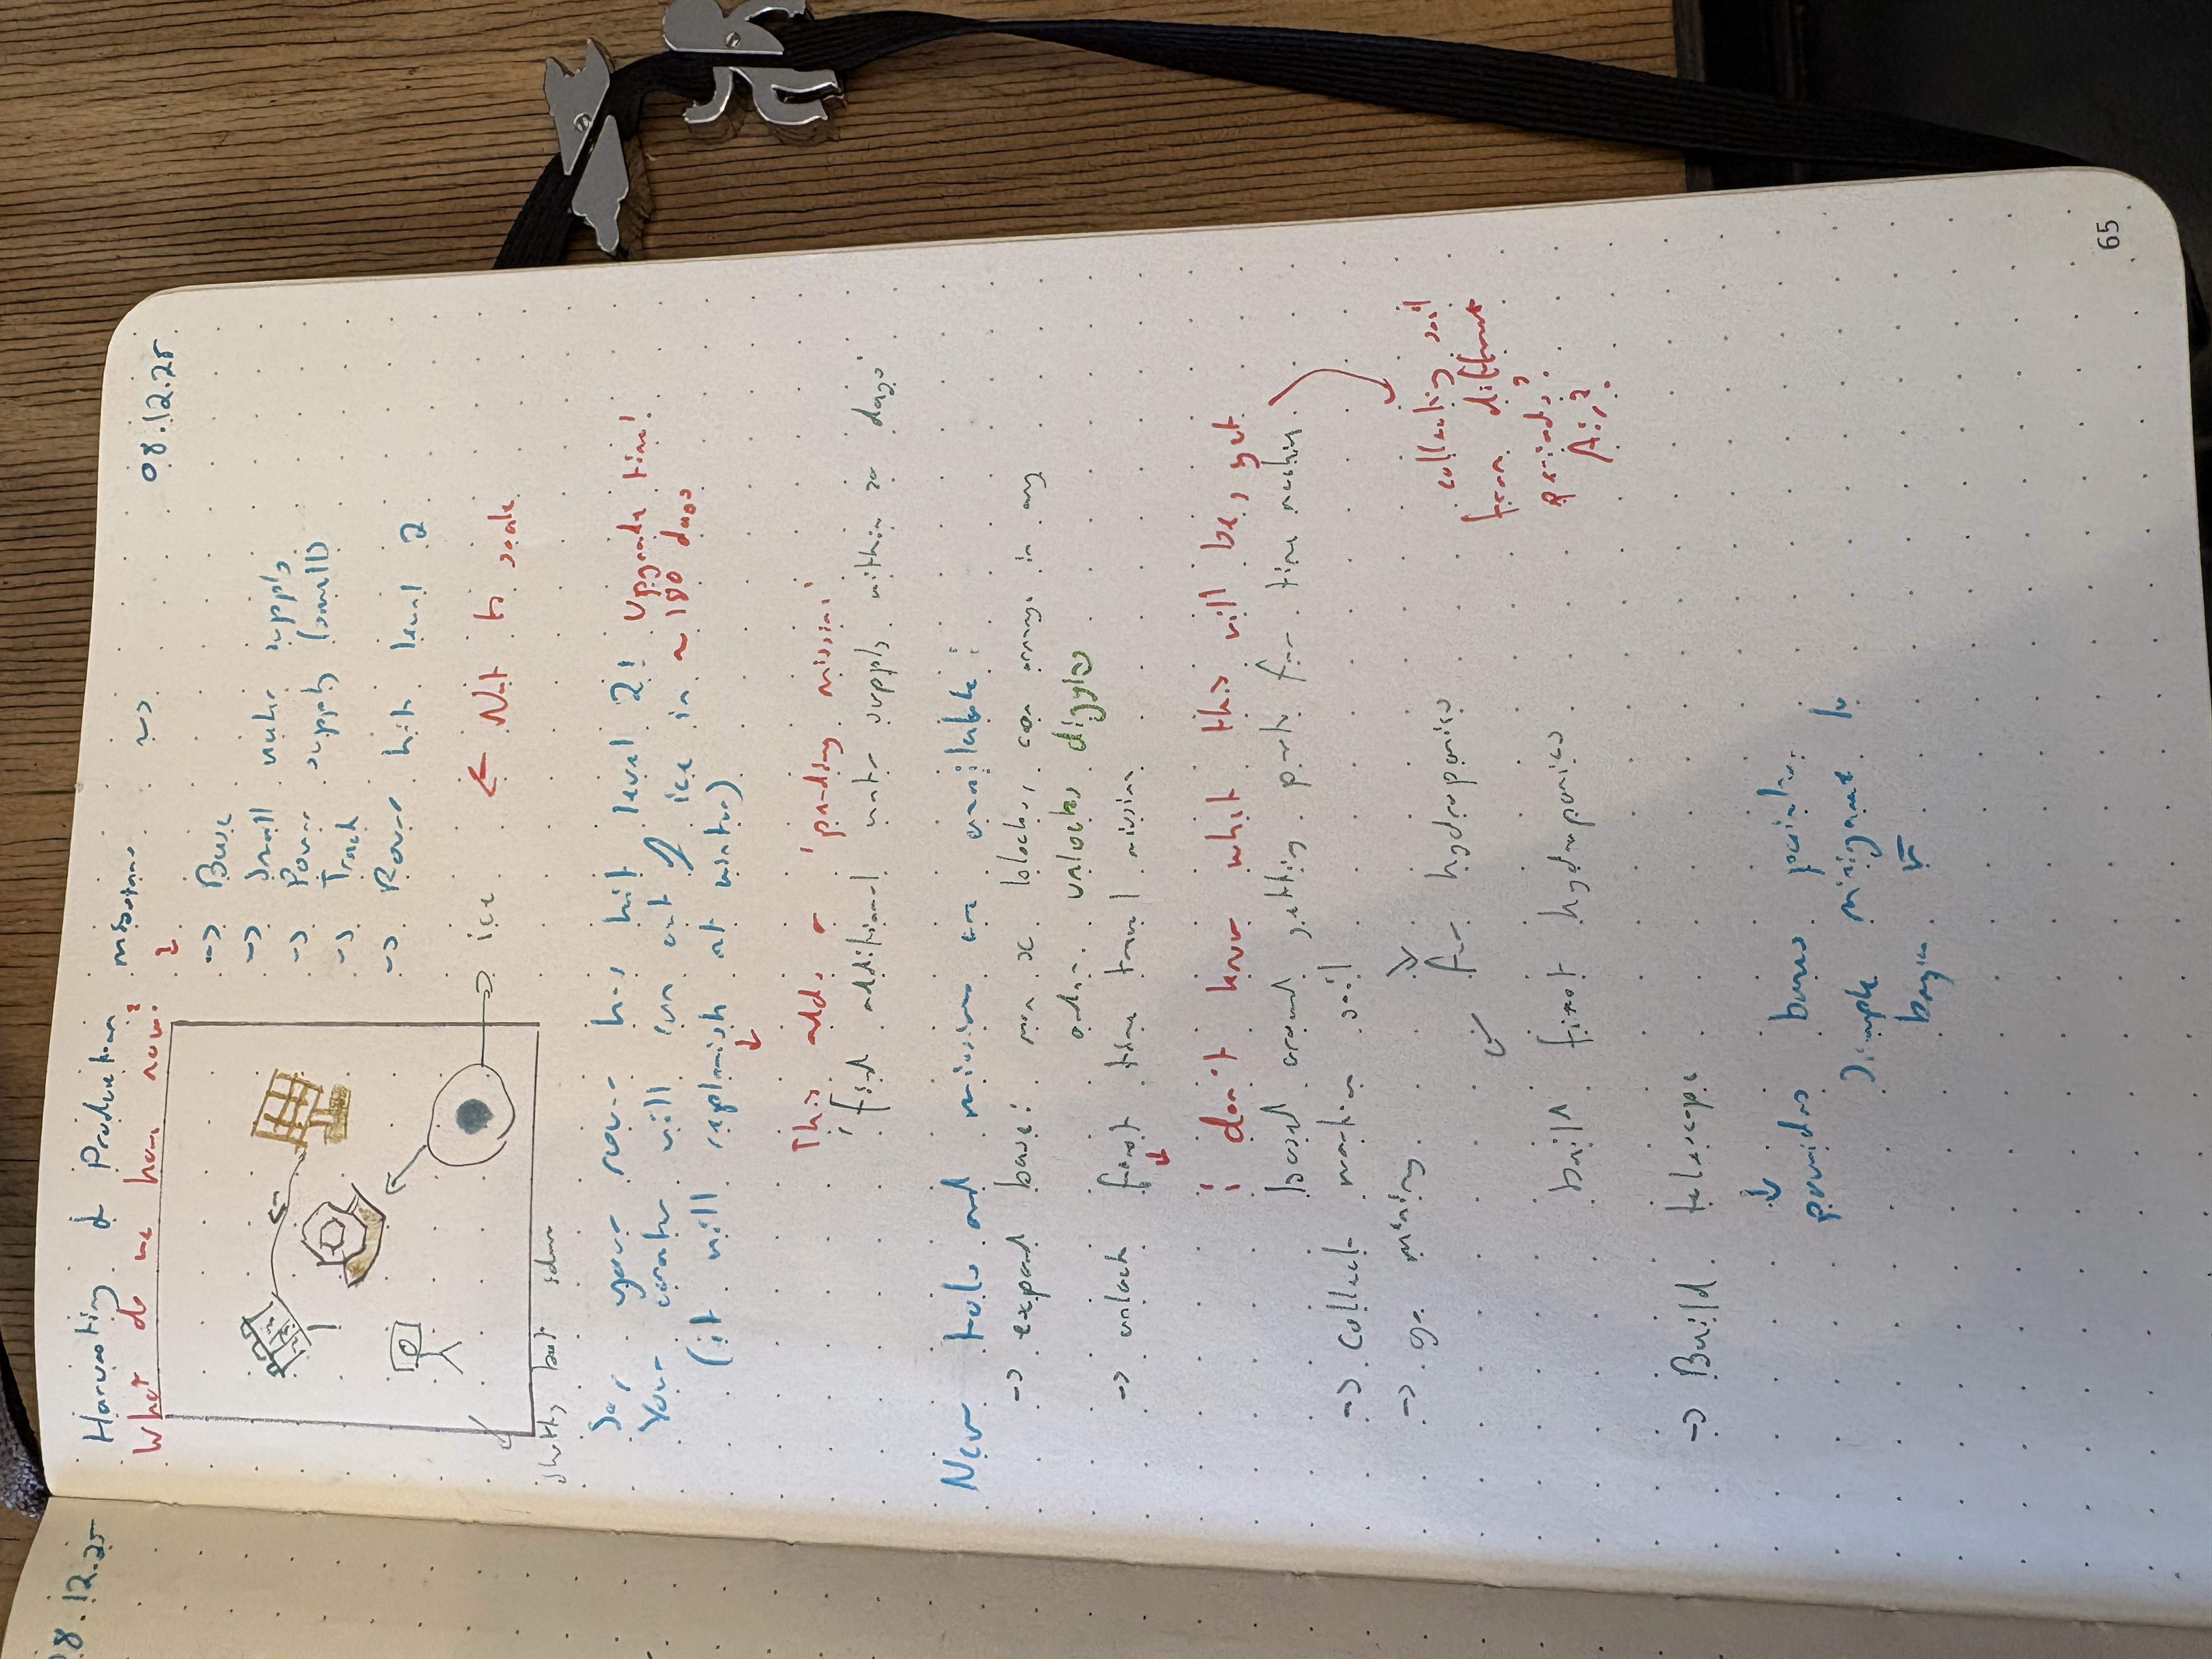 08.12.25
Harvesting & Production
08.12.25
What do we have now?
-> Base
-> Small water supply
-> Power supply (small)
-> Track
-> Rover hit level 2
ice
<- Not to scale
So, your rover has hit level 2! Upgrade time!
Your crater will run out of ice in ~180 days
(it will replenish at winter)
This adds a 'pending mission'
'find additional water supply within 30 days'
New tools and missions are available:
-> expand base: more blocks, can arrange in any
order. unlocks digging
-> unlock first time travel mission
i don't know what this will be, yet
based around getting parts for time machine
-> Collect martian soil
collecting soil
from different
periods,
-> go mining
for hydroponics
built first hydroponics
-> Build telescope
provides bonus points.
Simple minigame to
begin
65